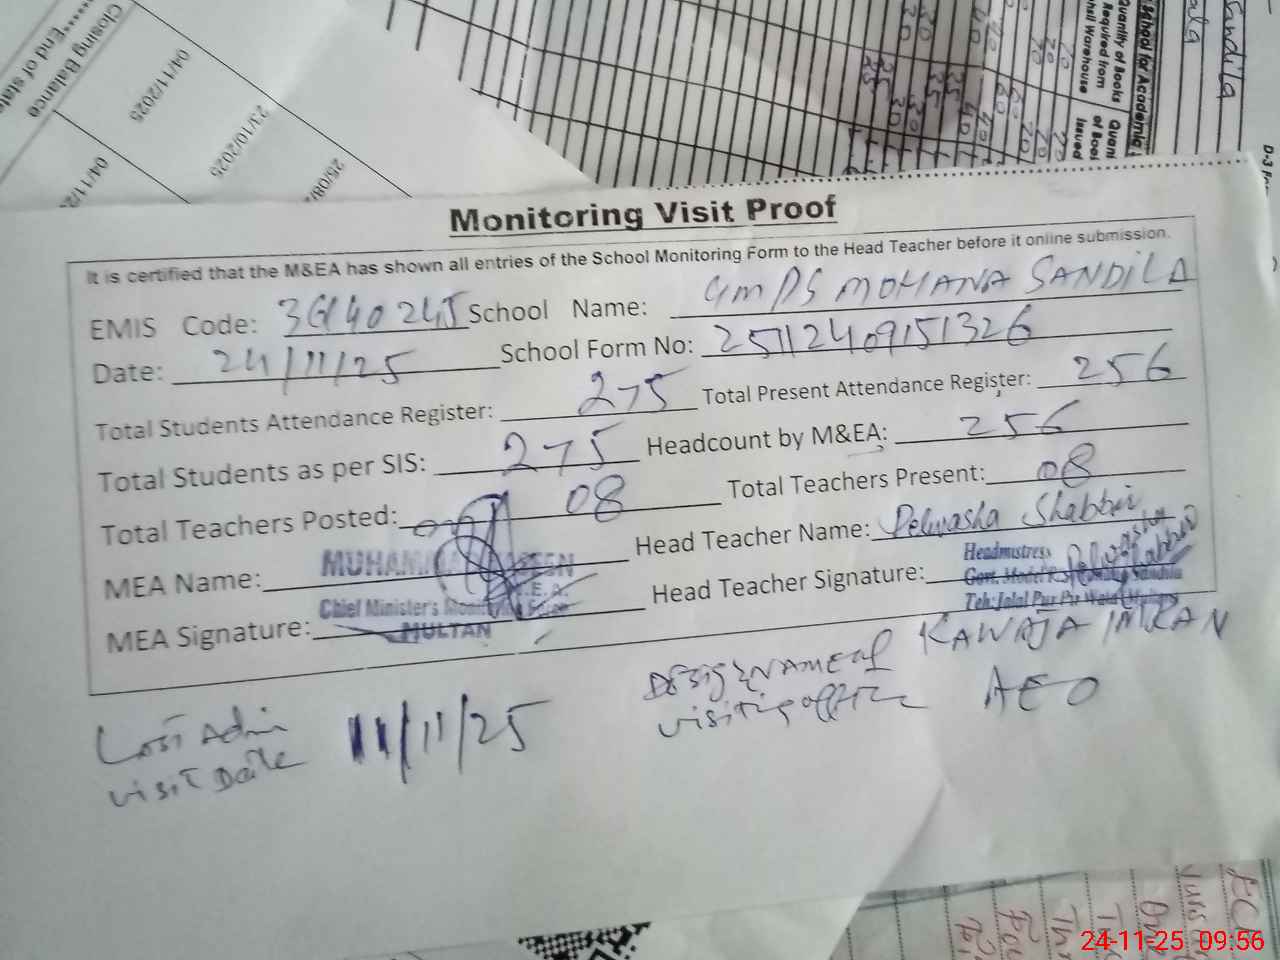 Sandila
ala
School for Academic
Quantity of Books
Required from
Warehouse
Quan
of Boo
Issued
D-3
Closing Balance
*End of state
04/11/2025
23/10/2025
25/08/
04/11/2
Monitoring Visit Proof
It is certified that the M&EA has shown all entries of the School Monitoring Form to the Head Teacher before it online submission.
EMIS Code: 36140245 School Name: GMPS MOHANA SANDILA
Date: 24/11/25 School Form No: 25112409151326
Total Students Attendance Register: 275 Total Present Attendance Register: 256
Total Students as per SIS: 275 Headcount by M&EA: 256
Total Teachers Posted: 08 Total Teachers Present: 08
MEA Name: Head Teacher Name: Pelwasha Shabbir
MEA Signature: Head Teacher Signature:
Chief Minister's Monitoring Force
MULTAN
Headmistress
Last Admin
visit Date 11/11/25
DESIG & NAME of KAWAJA IMRAN
visiting officer AEO
24-11-25 09:56